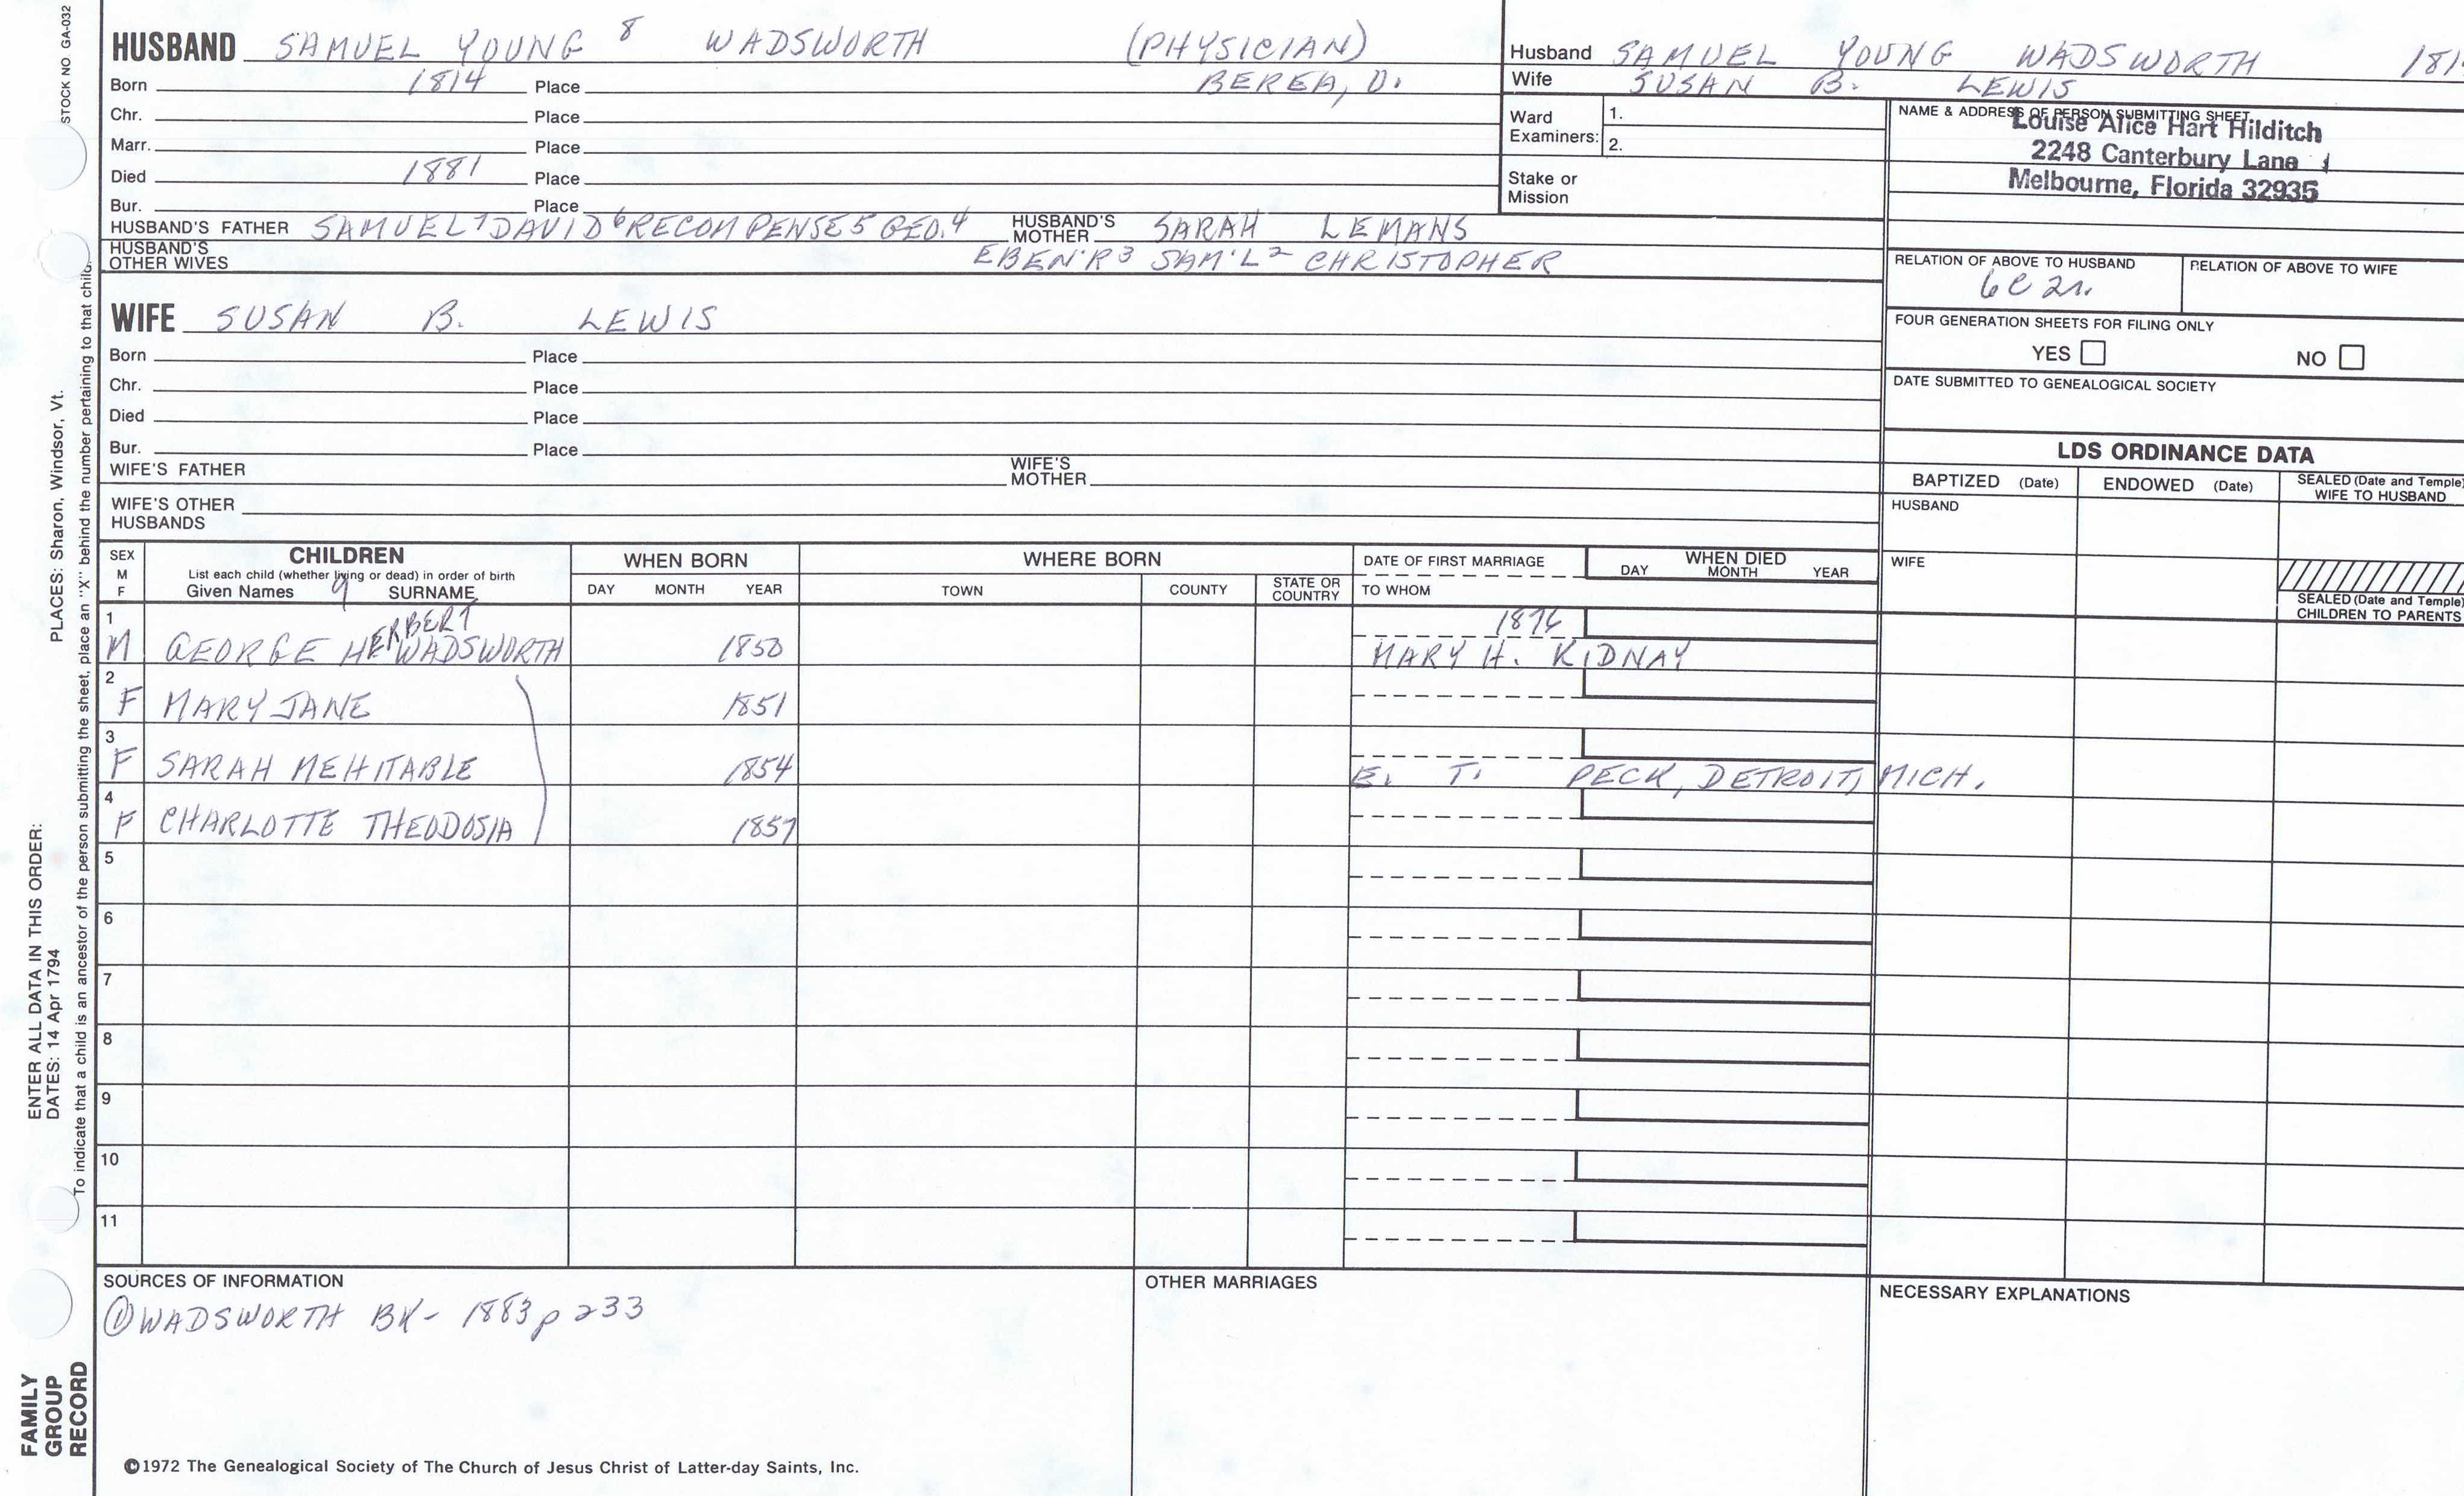 STOCK NO. GA-032
PLACES: Sharon, Windsor, Vt.
ENTER ALL DATA IN THIS ORDER:
DATES: 14 Apr 1794
To indicate that a child is an ancestor of the person submitting the sheet, place an "X" behind the number pertaining to that child.
FAMILY GROUP RECORD
HUSBAND SAMUEL YOUNG 8 WADSWORTH (PHYSICIAN)
Born 1814 Place BEREA, O.
Chr. Place
Marr. Place
Died 1881 Place
Bur. Place
HUSBAND'S FATHER SAMUEL 7 DAVID 6 RECOMPENSE 5 GEO. 4 HUSBAND'S MOTHER SARAH LEMANS
HUSBAND'S OTHER WIVES EBEN'R 3 SAM'L 2 CHRISTOPHER
WIFE SUSAN B. LEWIS
Born Place
Chr. Place
Died Place
Bur. Place
WIFE'S FATHER WIFE'S MOTHER
WIFE'S OTHER HUSBANDS
Husband SAMUEL YOUNG WADSWORTH
Wife SUSAN B. LEWIS
Ward Examiners: 1.
2.
Stake or Mission
NAME & ADDRESS OF PERSON SUBMITTING SHEET
Louise Alice Hart Hilditch
2248 Canterbury Lane
Melbourne, Florida 32935
RELATION OF ABOVE TO HUSBAND RELATION OF ABOVE TO WIFE
6C 2r.
FOUR GENERATION SHEETS FOR FILING ONLY
YES NO
DATE SUBMITTED TO GENEALOGICAL SOCIETY
LDS ORDINANCE DATA
BAPTIZED (Date) ENDOWED (Date) SEALED (Date and Temple) WIFE TO HUSBAND
HUSBAND
WIFE
SEALED (Date and Temple) CHILDREN TO PARENTS
SEX M F CHILDREN WHEN BORN WHERE BORN DATE OF FIRST MARRIAGE WHEN DIED
List each child (whether living or dead) in order of birth
Given Names 9 SURNAME DAY MONTH YEAR TOWN COUNTY STATE OR COUNTRY TO WHOM DAY MONTH YEAR
1 M GEORGE HERBERT WADSWORTH 1850 1876 MARY H. KIDNAY
2 F MARY JANE 1851
3 F SARAH MEHITABLE 1854 E. T. PECK, DETROIT, MICH.
4 F CHARLOTTE THEODOSIA 1857
5
6
7
8
9
10
11
SOURCES OF INFORMATION OTHER MARRIAGES NECESSARY EXPLANATIONS
① WADSWORTH BK - 1883 p 233
©1972 The Genealogical Society of The Church of Jesus Christ of Latter-day Saints, Inc.